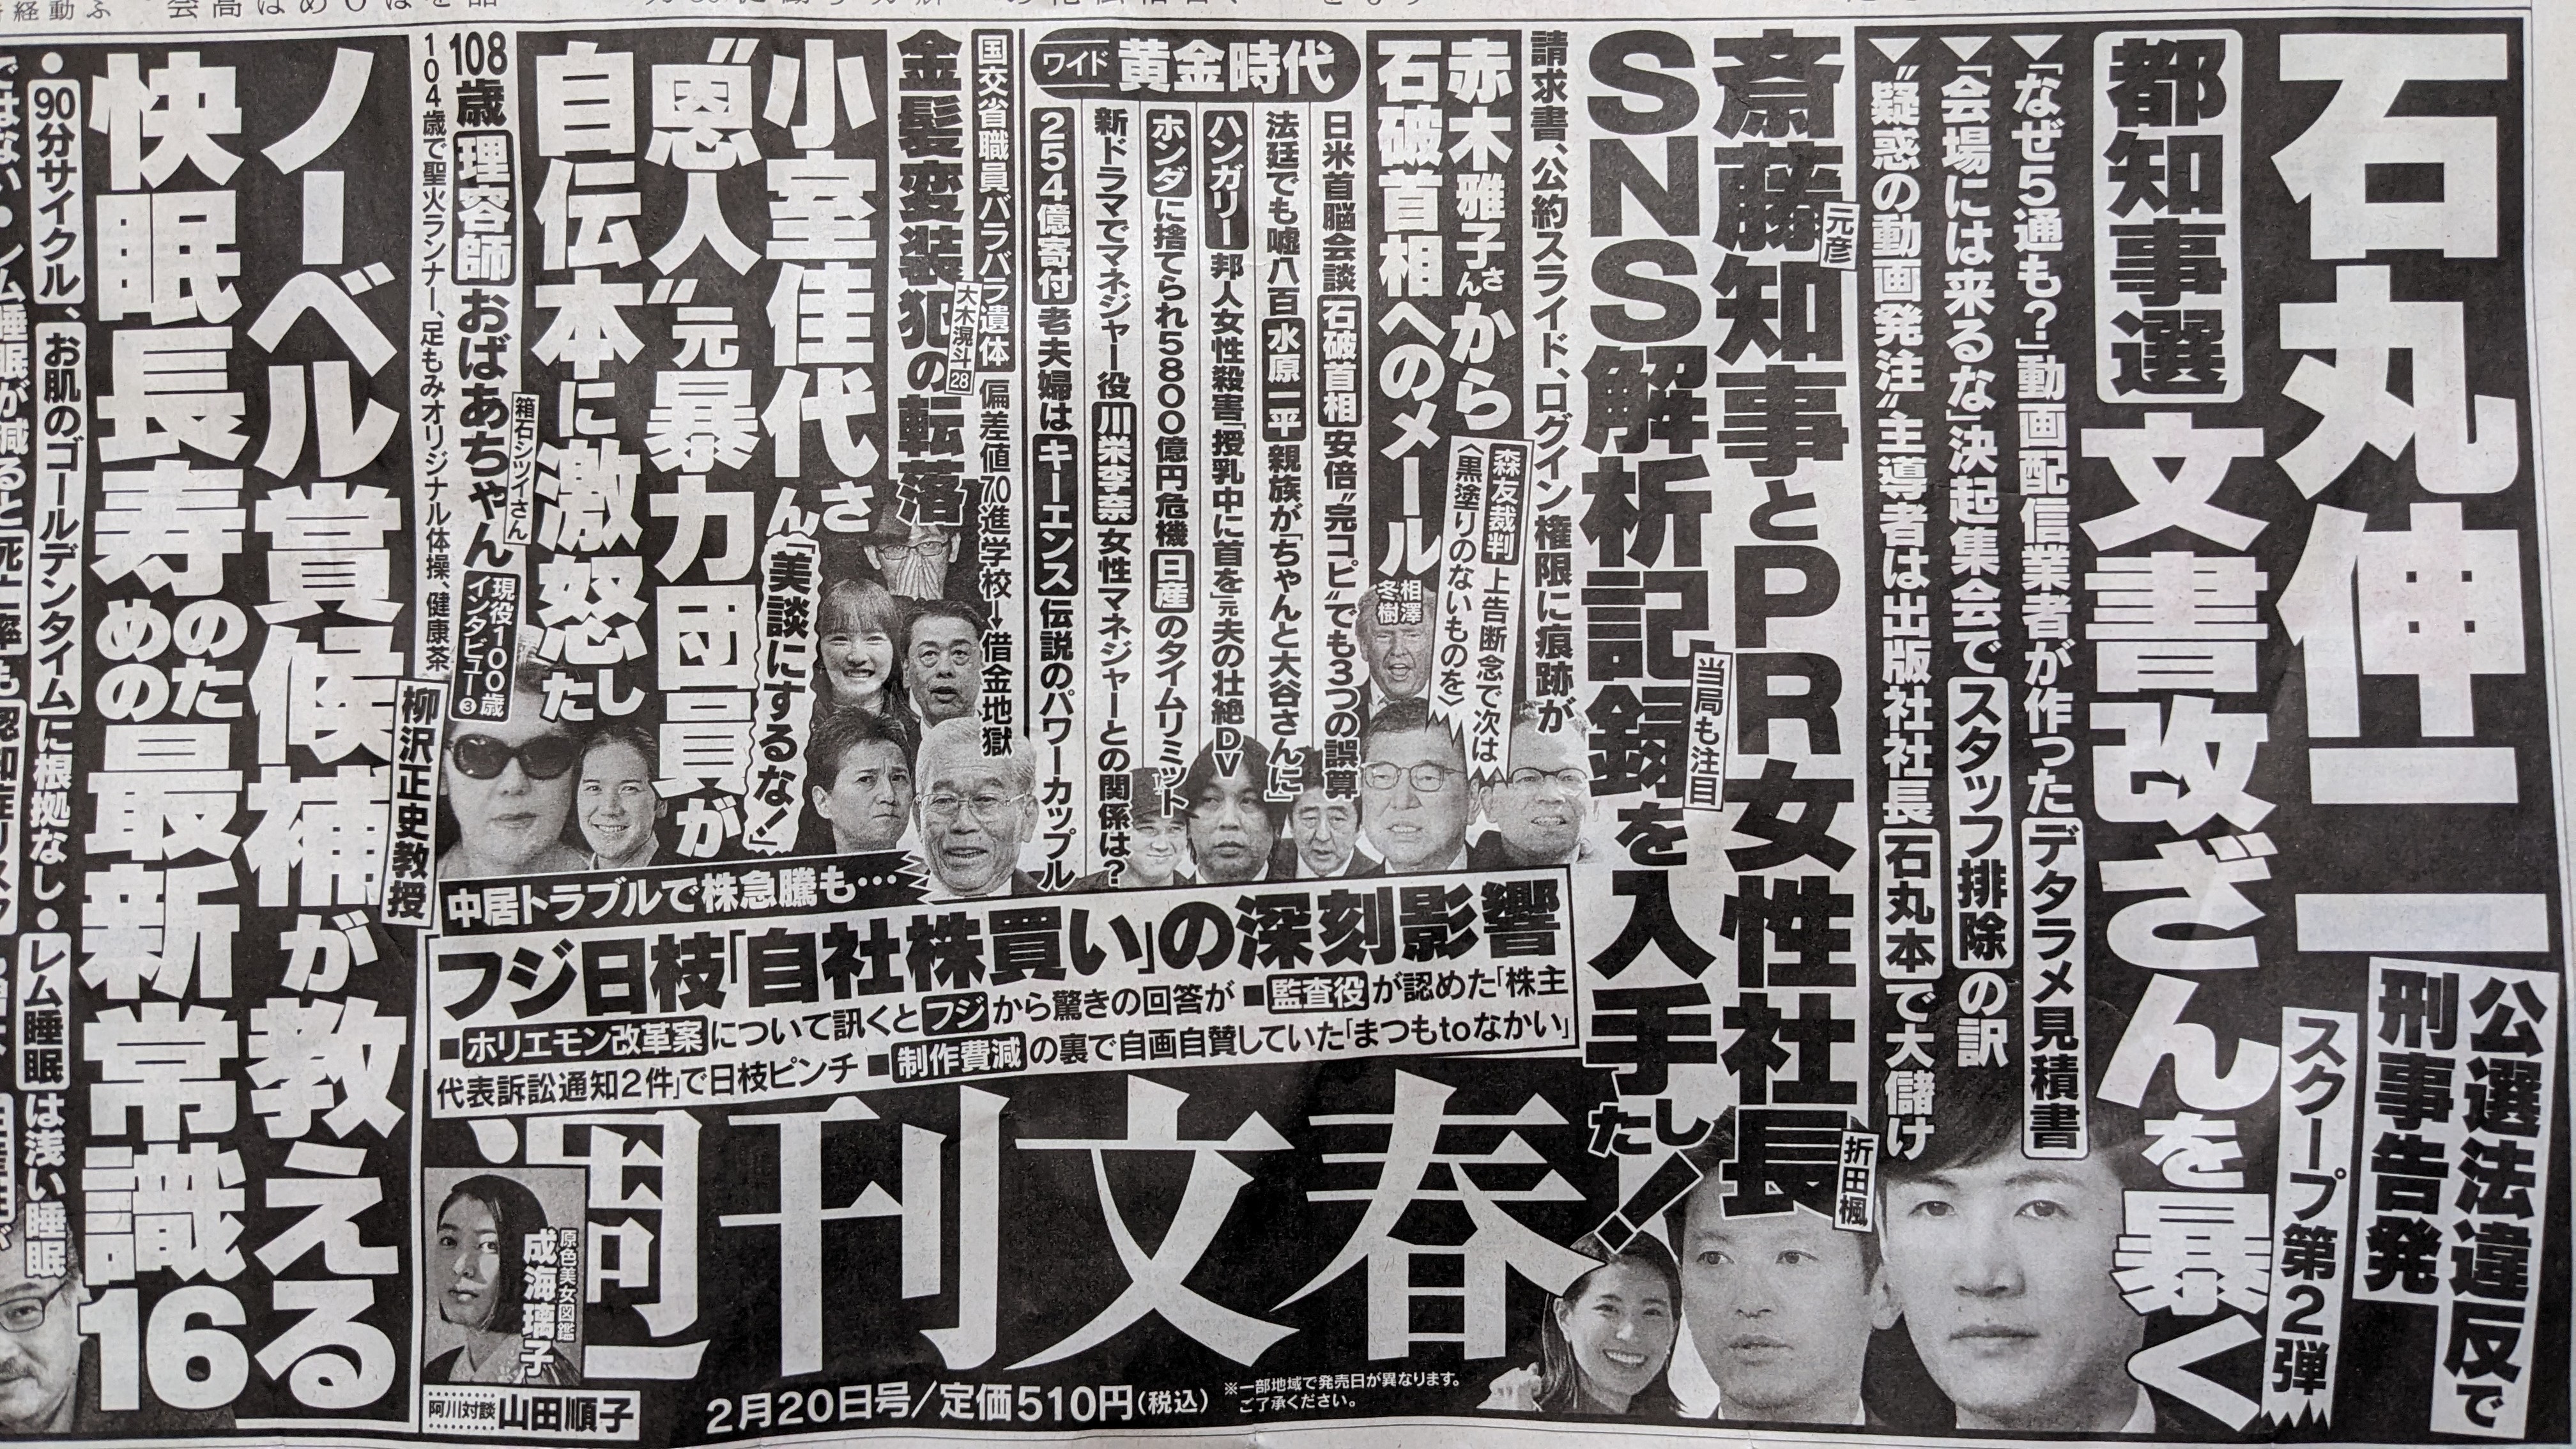 石丸伸二
公選法違反で
刑事告発
スクープ第2弾
都知事選
文書改ざんを暴く
▼「なぜ5通も?」動画配信業者が作ったデタラメ見積書
▼「会場には来るな」決起集会でスタッフ排除の訳
▼“疑惑の動画発注”主導者は出版社社長 石丸本で大儲け
斎藤知事とPR女性社長
元彦
折田楓
SNS解析記録を入手した!
当局も注目
請求書、公約スライド、ログイン権限に痕跡が
赤木雅子さんから
石破首相へのメール
相澤冬樹
森友裁判 上告断念で次は
〈黒塗りのないものを〉
ワイド 黄金時代
日米首脳会談 石破首相 安倍“完コピ”でも3つの誤算
法廷でも嘘八百 水原一平 親族が「ちゃんと大谷さんに」
ハンガリー邦人女性殺害「授乳中に首を」元夫の壮絶DV
ホンダに捨てられ5800億円危機 日産のタイムリミット
新ドラマでマネジャー役 川栄李奈 女性マネジャーとの関係は?
254億寄付 老夫婦はキーエンス伝説のパワーカップル
国交省職員バラバラ遺体 偏差値70進学校→借金地獄
金髪変装犯の転落
大木滉斗28
小室佳代さん「美談にするな!」
“恩人”元暴力団員が
自伝本に激怒した
108歳 理容師 おばあちゃん
箱石シツイさん
現役100歳
インタビュー❸
104歳で聖火ランナー、足もみオリジナル体操、健康茶
中居トラブルで株急騰も…
フジ日枝「自社株買い」の深刻影響
■ホリエモン改革案について訊くとフジから驚きの回答が ■監査役が認めた「株主
代表訴訟通知2件」で日枝ピンチ ■制作費減の裏で自画自賛していた「まつもtoなかい」
週刊文春
原色美女図鑑
成海璃子
阿川対談 山田順子
2月20日号/定価510円(税込)
※一部地域で発売日が異なります。
ご了承ください。
ノーベル賞候補が教える
柳沢正史教授
快眠長寿のための最新常識16
●90分サイクル、お肌のゴールデンタイムに根拠なし●レム睡眠は浅い睡眠
ではない●レム睡眠が減ると死亡率も認知症リスク